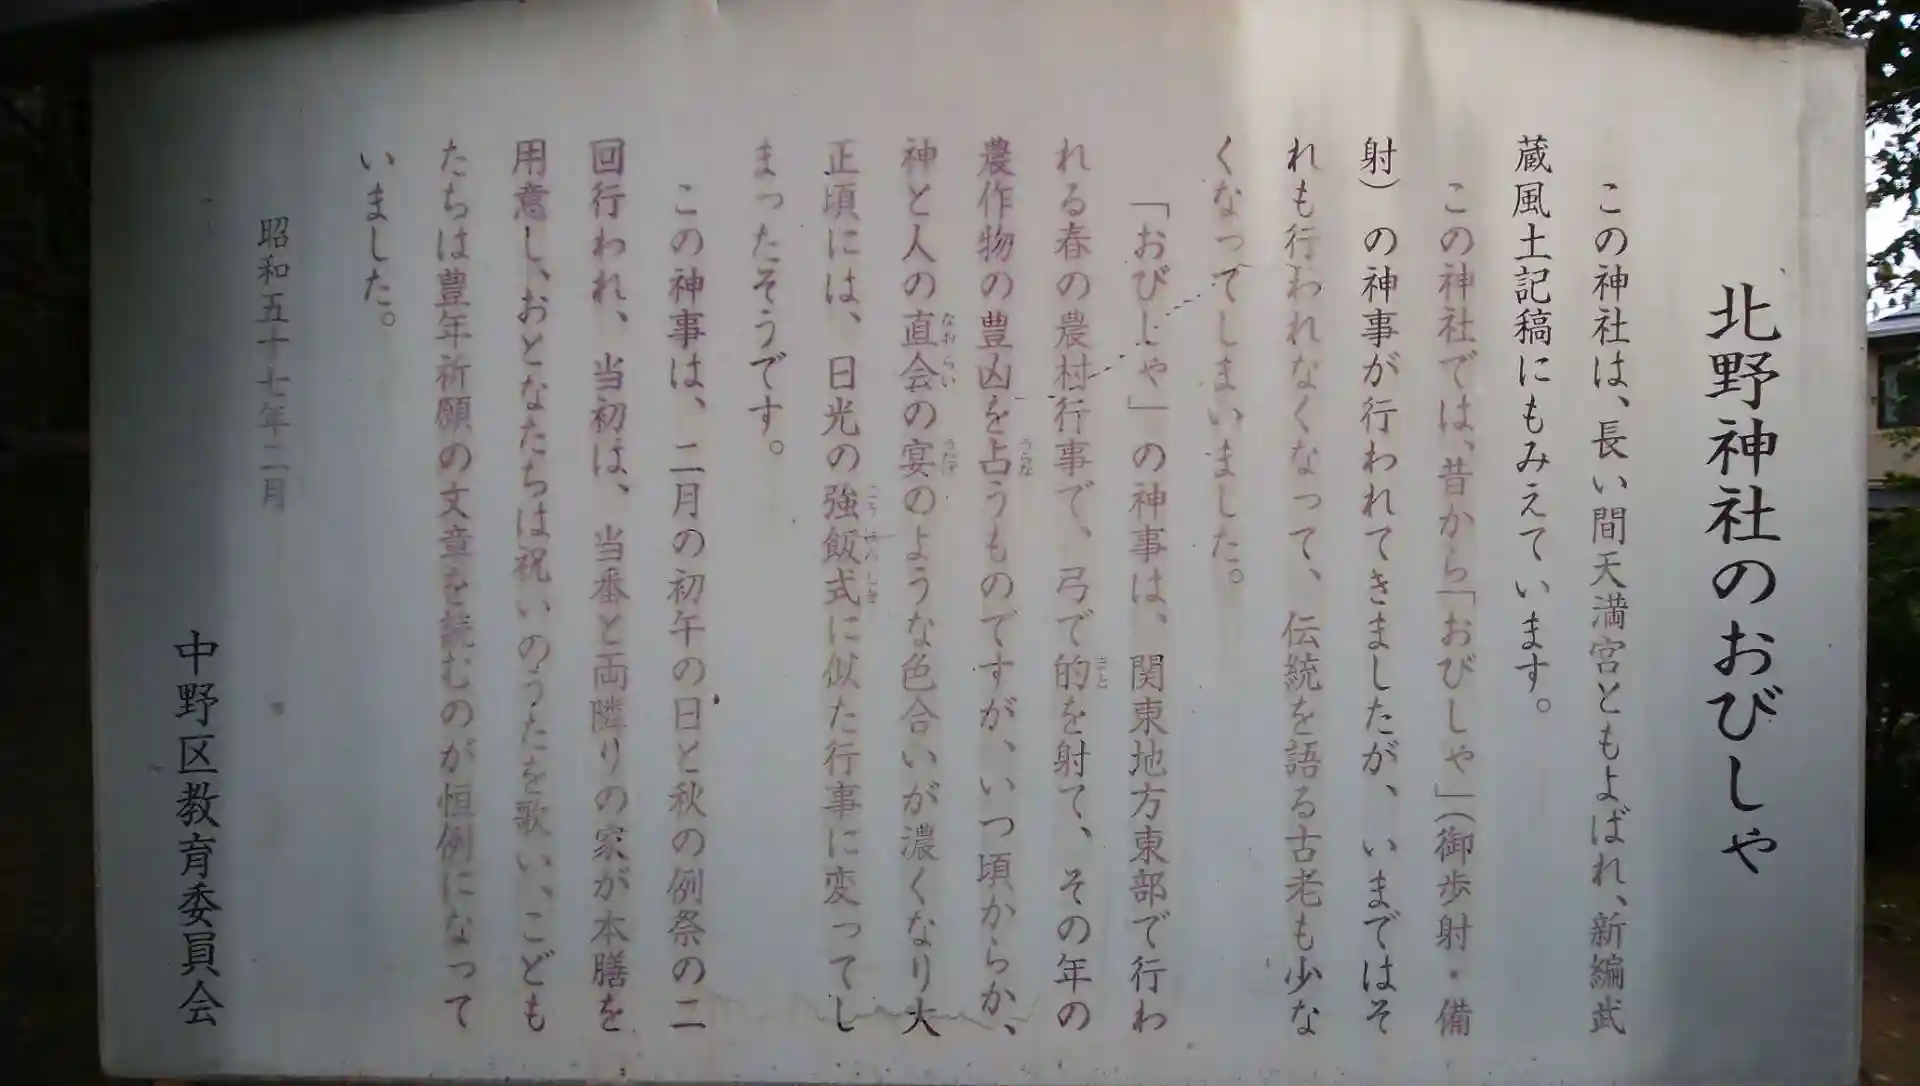 北野神社のおびしや
この神社は、長い間天満宮ともよばれ、新編武
蔵風土記稿にもみえています。
この神社では、昔から「おびしや」（御歩射・備
射）の神事が行われてきましたが、いまではそ
れも行われなくなって、伝統を語る古老も少な
くなってしまいました。
「おびしや」の神事は、関東地方東部で行わ
れる春の農村行事で、弓で的を射て、その年の
農作物の豊凶を占うものですが、いつ頃からか、
神と人の直会の宴のような色合いが濃くなり大
正頃には、日光の強飯式に似た行事に変ってし
まったそうです。
この神事は、二月の初午の日と秋の例祭の二
回行われ、当初は、当番と両隣りの家が本膳を
用意し、おとなたちは祝いのうたを歌い、こども
たちは豊年祈願の文章を読むのが恒例になって
いました。
昭和五十七年二月
中野区教育委員会